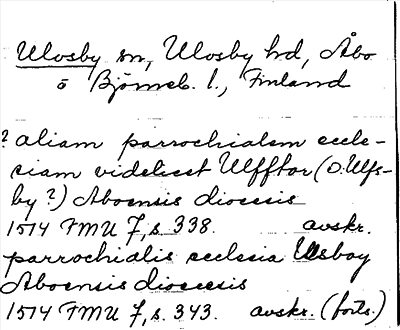 Ulvsby sn, Ulvsby hd, Åbo
o Björneb. l., Finland
? aliam parrochialem eccle-
siam videlicet Ulfftor (o: Ulfs-
by?) Aboensis diocesis
1514 FMU 7, s. 338. avskr.
parrochialis ecclesia Ulsboy
Aboensis diocesis
1514 FMU 7, s. 343. avskr. (forts.)